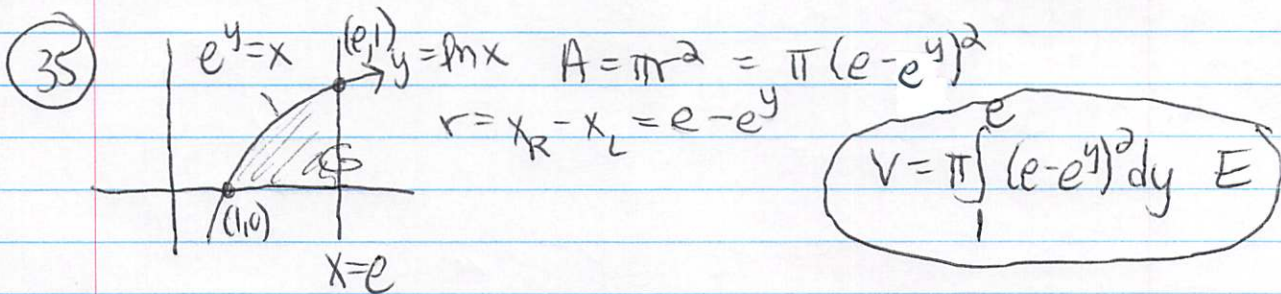 35
e^y = x (e,1) y = ln x A = πr² = π(e-e^y)²
r = x_R - x_L = e - e^y
V = π∫₁ᵉ (e-e^y)² dy E
(1,0)
x = e